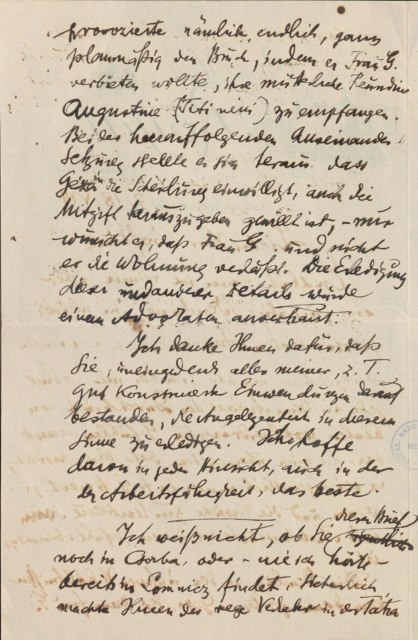 provozierte nämlich, endlich, ganz
planmäßig den Bruch, indem er Frau G.
verbieten wollte, ihre mütterliche Freundin
Augustine (Teti néni) zu empfangen.
Bei der herauffolgenden Auseinander-
setzung stellte es sich heraus, dass
Géza in die Scheidung einwilligt, auch die
Mitgift herauszugeben gewillt ist, – nur
wünscht er, daß Frau G. und nicht
er die Wohnung verläßt. Die Erledigung
dieser und anderer Details wurde
einem Advokaten anvertraut.
Ich danke Ihnen dafür, daß
Sie, uneingedenk aller meiner, z. T.
gut konstruierten Einwendungen darauf
bestanden, die Angelegenheit in diesem
Sinne zu erledigen. Ich hoffe
davon in jeder Hinsicht, auch in der
der Arbeitsfähigkeit, das beste.
Ich weiß nicht, ob Sie dieser Brief
noch in Csorba, oder – wie ich hörte –
bereits in Lomnicz findet. Sicherlich
machte Ihnen der rege Verkehr in der Tátra